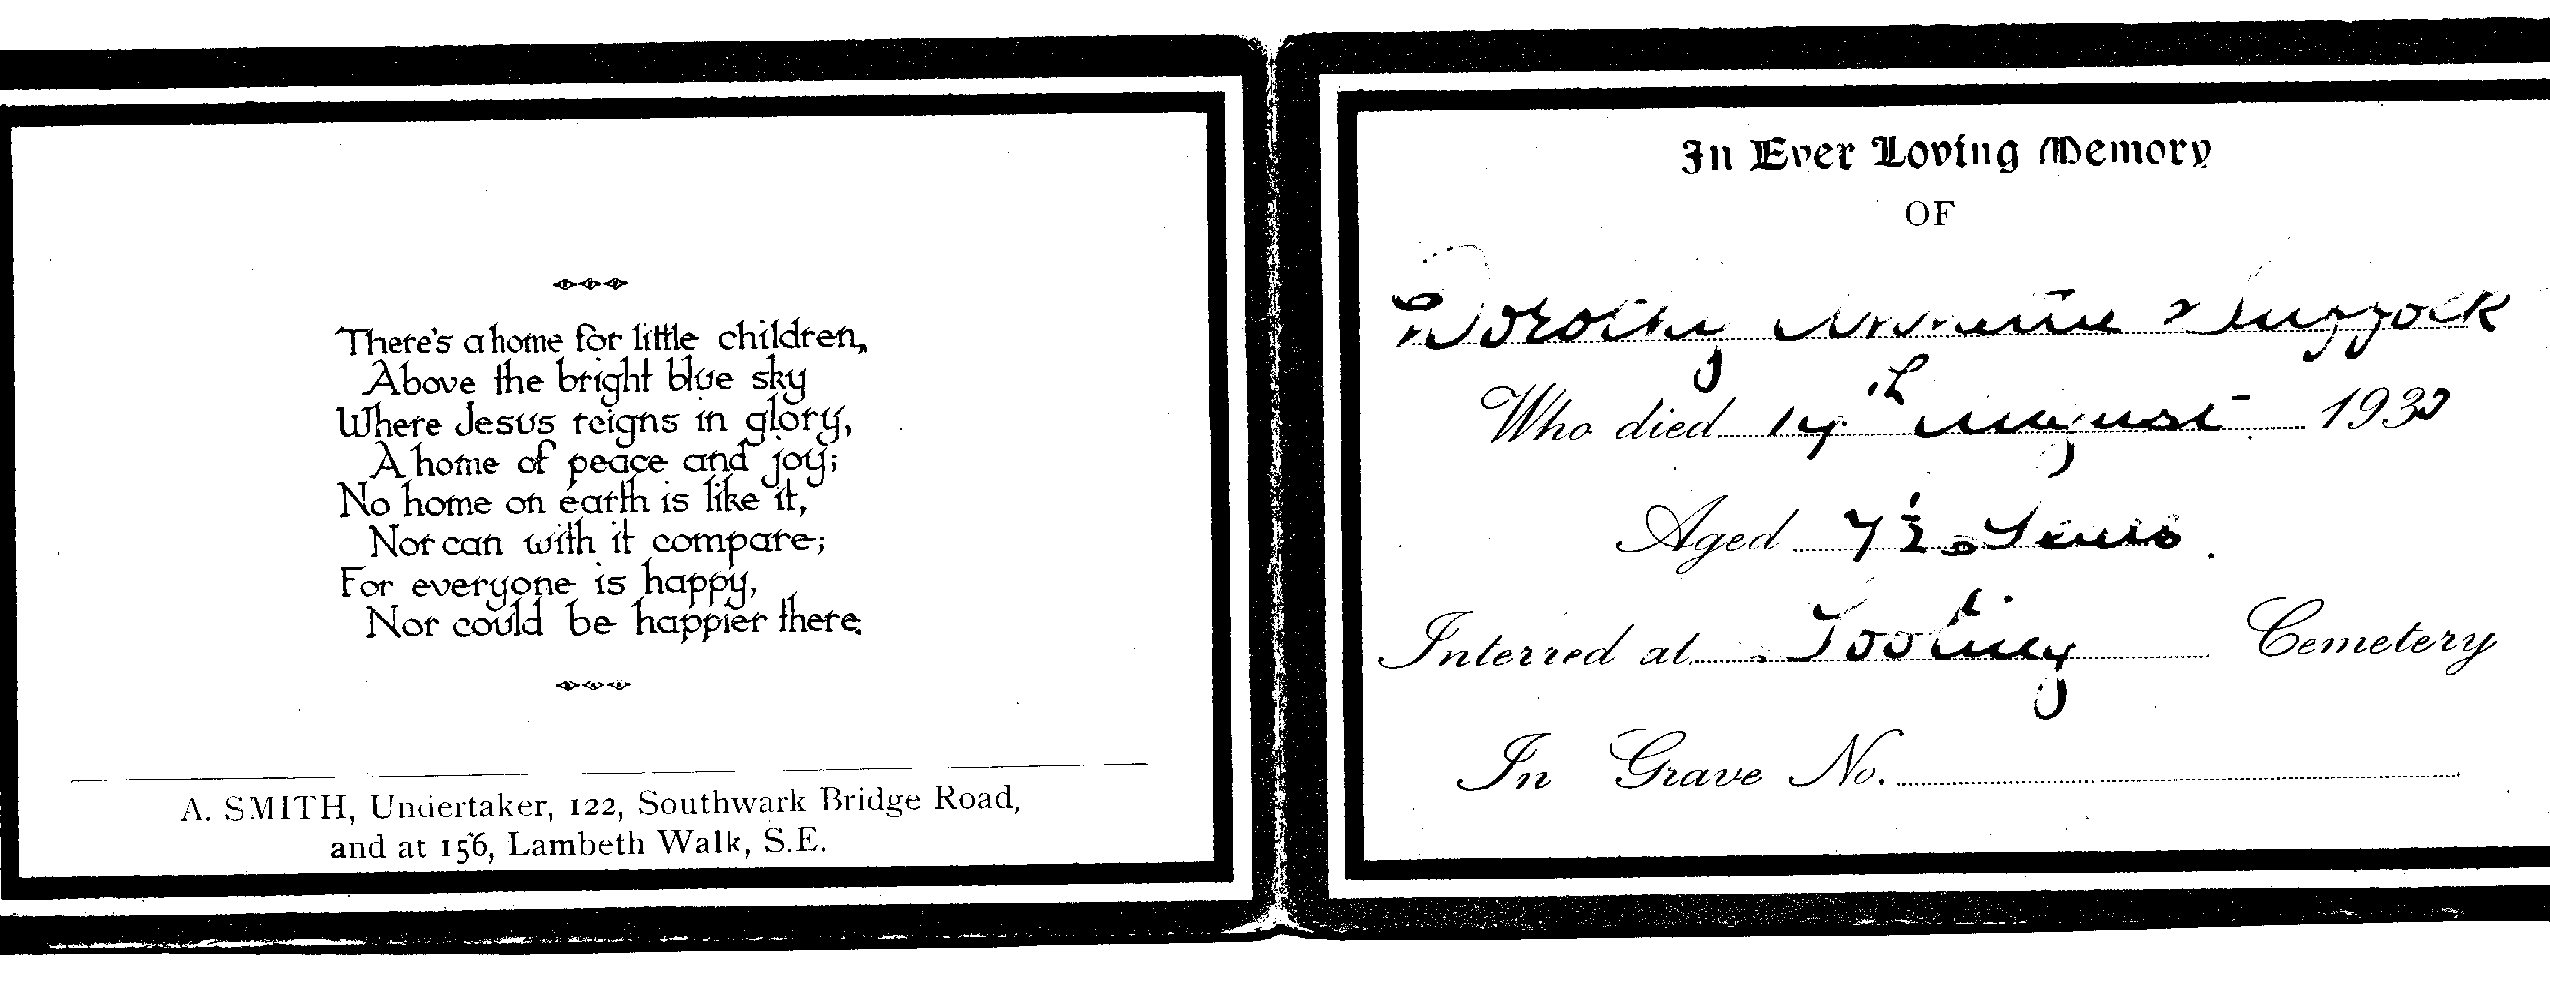 There's a home for little children,
Above the bright blue sky
Where Jesus reigns in glory,
A home of peace and joy;
No home on earth is like it,
Nor can with it compare;
For everyone is happy,
Nor could be happier there.
A. SMITH, Undertaker, 122, Southwark Bridge Road,
and at 156, Lambeth Walk, S.E.
In Ever Loving Memory
OF
Dorothy
Who died August 193
Aged 7½ Years.
Interred at Tooting Cemetery
In Grave No.